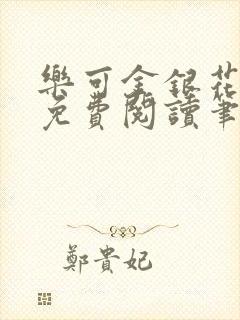 樂可金銀花
免費閱讀筆
鄭貴妃